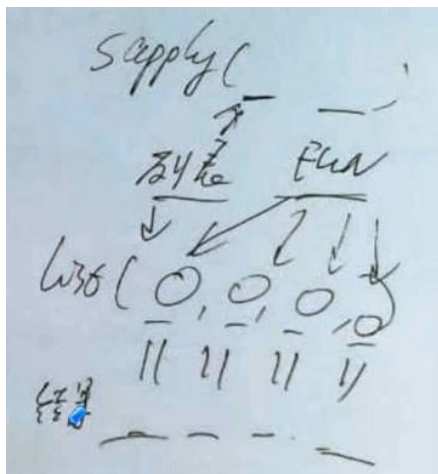 sapply( _ _ )
FUN
list( O, O, O, O )
结果